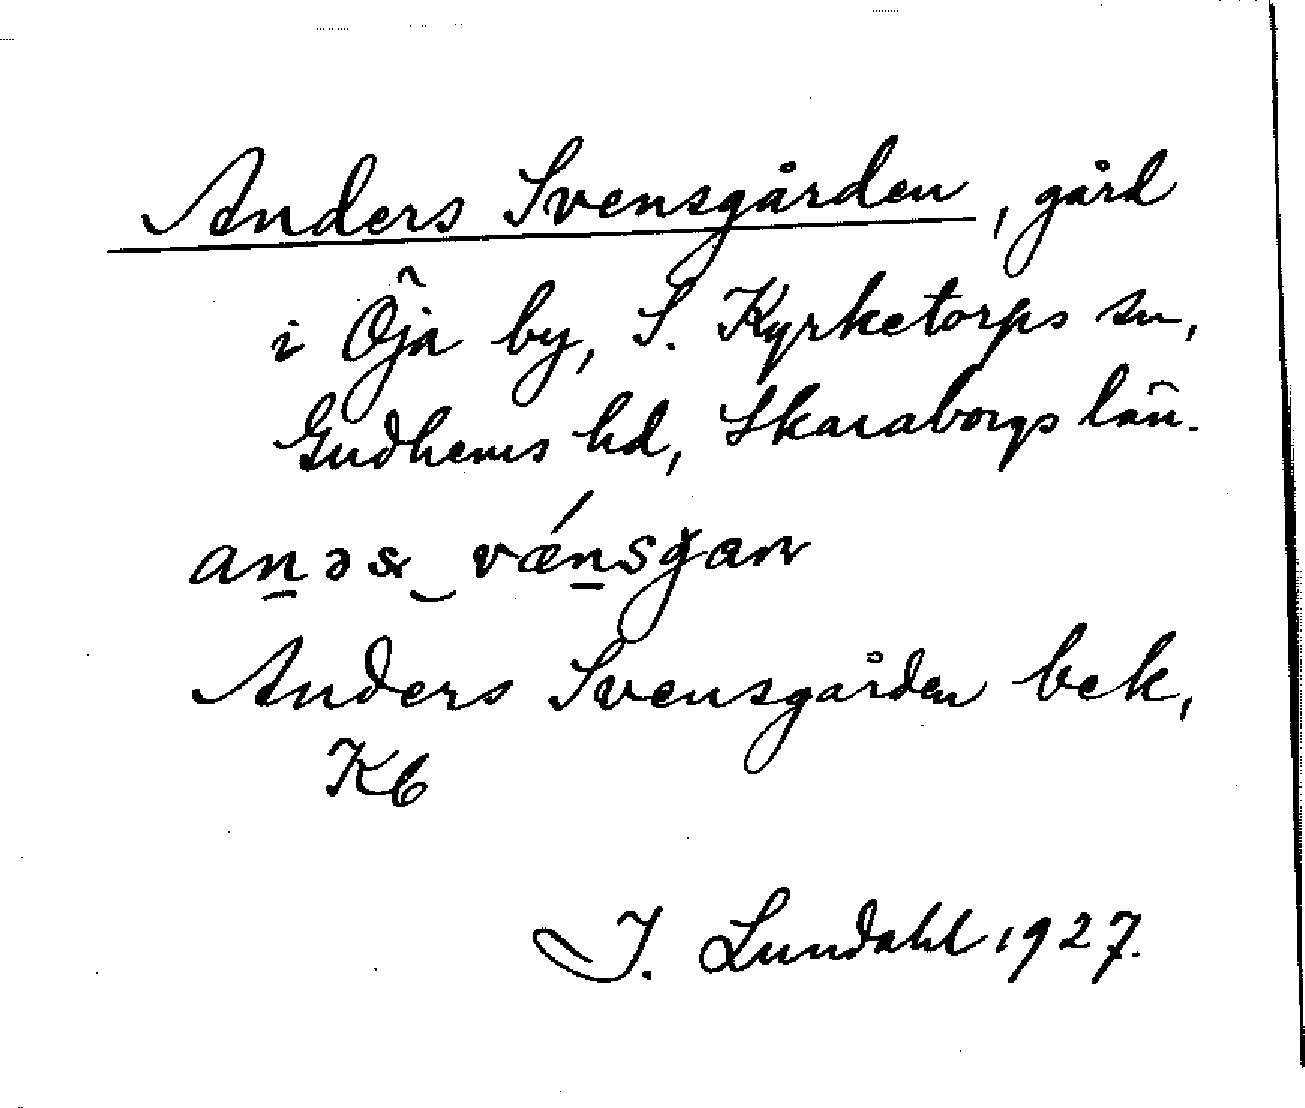 Anders Svensgården, gård
i Öja by, S. Kyrketorps sn,
Gudhems hd, Skaraborgs län.
Anders Svensgården bek,
Kb
I. Lundahl 1927.